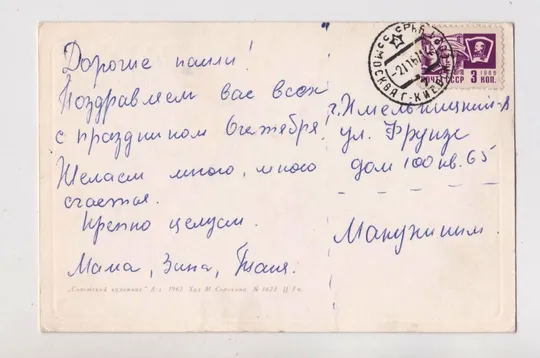 Дорогие наши!
Поздравляем вас всех
с праздником Октября!
Желаем много, много
счастья.
Крепко целуем.
Мама, Зина, Таня.
г. Хмельницкий
ул. Фрунзе
дом 100 кв. 65
Макужиным
ПОЧТА СССР 1966 3 КОП.
МОСКВА Г-
„Советский художник"
№